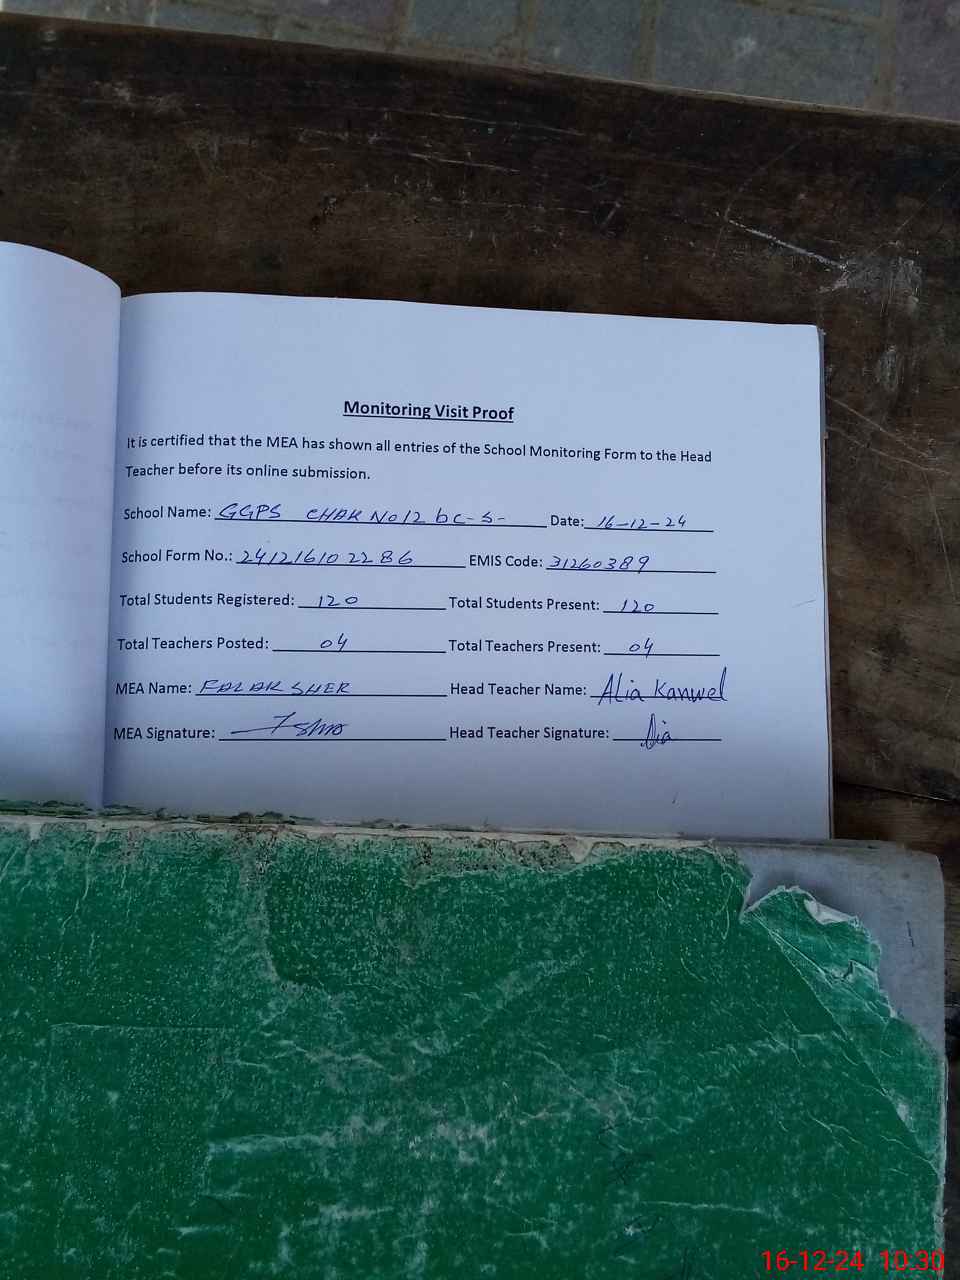 Monitoring Visit Proof
It is certified that the MEA has shown all entries of the School Monitoring Form to the Head
Teacher before its online submission.
School Name: GGPS CHAK No 12 bc-s- Date: 16-12-24
School Form No.: 2412161022 86 EMIS Code: 31260389
Total Students Registered: 120 Total Students Present: 120
Total Teachers Posted: 04 Total Teachers Present: 04
MEA Name: FALAK SHER Head Teacher Name: Alia Kanwel
MEA Signature: Head Teacher Signature:
16-12-24 10:30